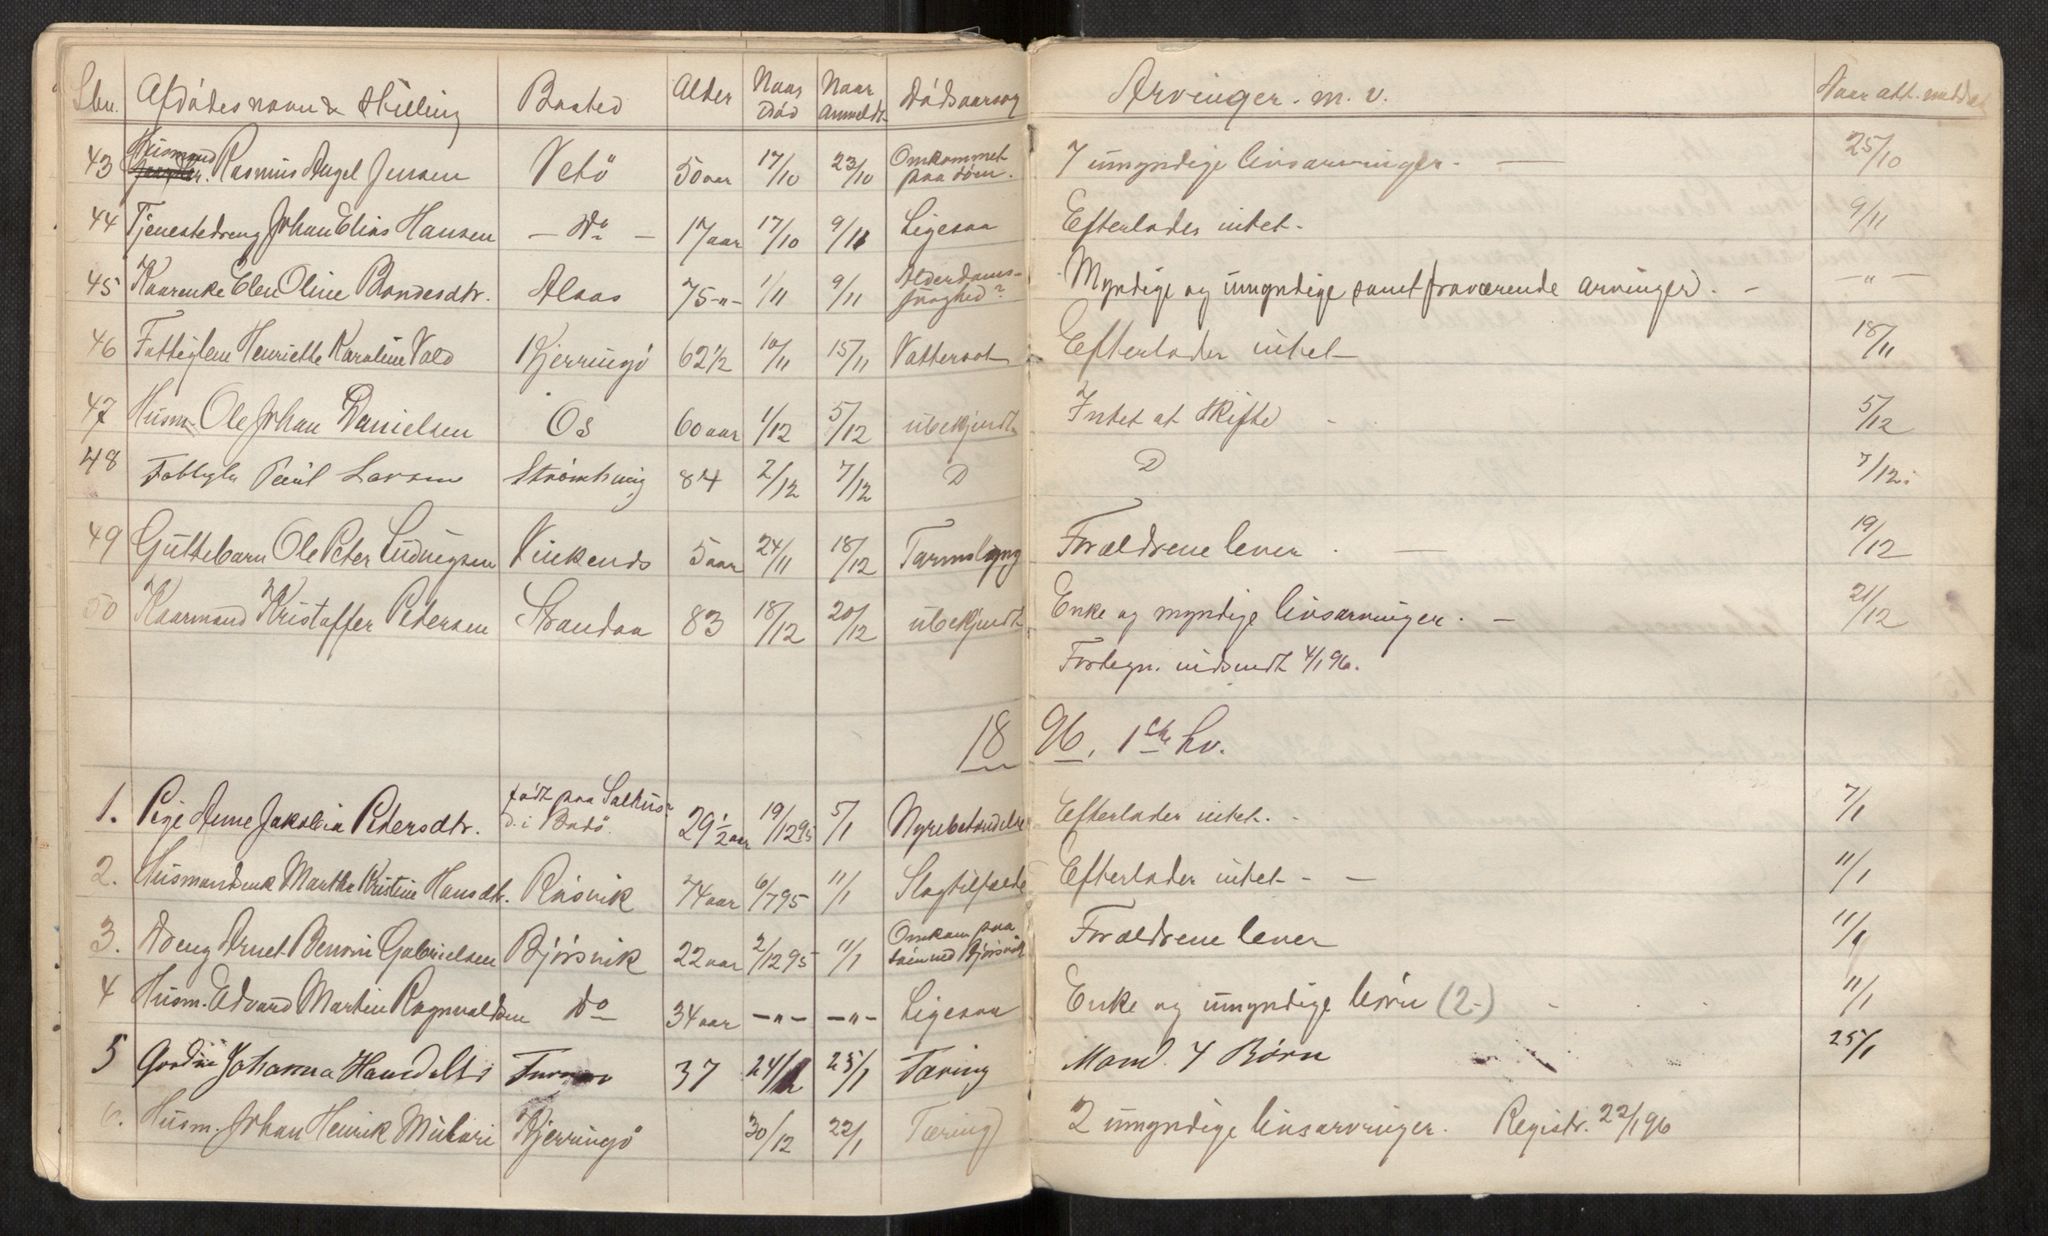 Lbn. Afdødes navn & Stilling Bosted Alder Naar Død Naar Anmeldt Dødsaarsag Arvinger. m. v. Naar att. meddelt
43 Husmand Rasmus Angel Jensen Vetö 50 aar 17/10 23/10 Omkommet paa søen. 7 umyndige livsarvinger. — 25/10
44 Tjenestedreng Johan Elias Hansen — Do — 17 aar 17/10 9/11 Ligesaa Efterlades intet. 9/11
45 Kaarenke Elen Oline Bondesdtr. 75 -"- 1/11 9/11 Alderdoms- svaghed? Myndige og umyndige samt fraværende arvinger. - — " —
46 Fattiglem Henriette Karoline Vold Kjerringö 62 1/2 10/11 15/11 Vattersot Efterlader intet 18/11
47 Husm. Ole Johan Danielsen Os 60 aar 1/12 5/12 ubekjendt Intet at Skifte - 5/12
48 Fattigl. Paul Larsen 84 2/12 7/12 D D 7/12.
49 Guttebarn Ole Peter Ludvigsen 5 aar 24/11 18/12 Tarmslyng Forældrene lever. — 19/12
50 Kaarmand Kristoffer Pedersen Strandaa 83 18/12 20/12 ubekjendt Enke og myndige livsarvinger. — 21/12
Fortegn. indsendt 4/1 96.
18 96. 1ste hv.
1. Pige Anne Jakobia Pedersdtr. født paa i Bodö. 29 1/2 aar 19/12 95 5/1 Nyrebetændelse Efterlader intet. - 7/1
2. Husmandsenk Martha Kristine Hansdtr. Røsvik 74 aar 6/7 95 11/1 Slagtilfælde Efterlader intet - — 11/1
3. Dreng Arnet Benoni Gabrielsen Bjørsvik 22 aar 2/12 95 11/1 Omkom paa søen ved Bjørsvik Forældrene lever 11/1
4 Husm. Edvard Martin Ragnvaldsen Do 34 aar -"- -"- Ligesaa Enke og umyndige børn (2-) 11/1
5 Johanna 37 24/12 25/1 Tæring Mand. 4 Børn 25/1
6. Husm. Johan Henrik Kjerringö 30/12 22/1 Tæring 2 umyndige livsarvinger. Registr. 22/1 96